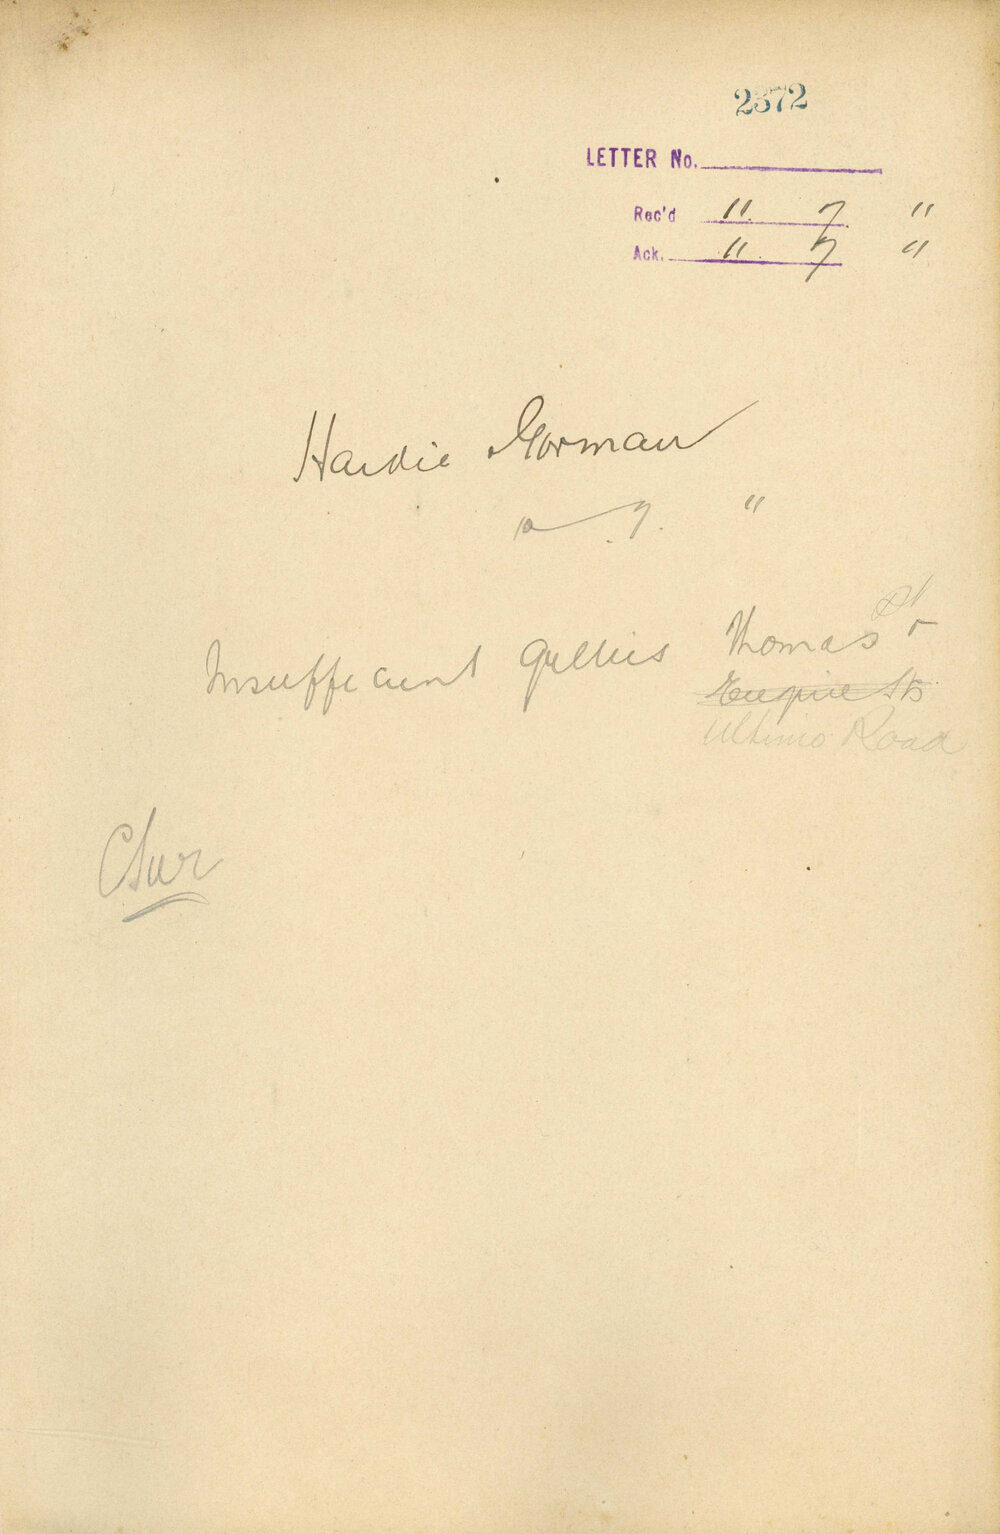 2372
LETTER No.
Rec'd 11 7 11
Ack. 11 7 11
Hardie Gorman
10 7. "
Insufficient Gullies Thomas St &
Empire Sts
Ultimo Road